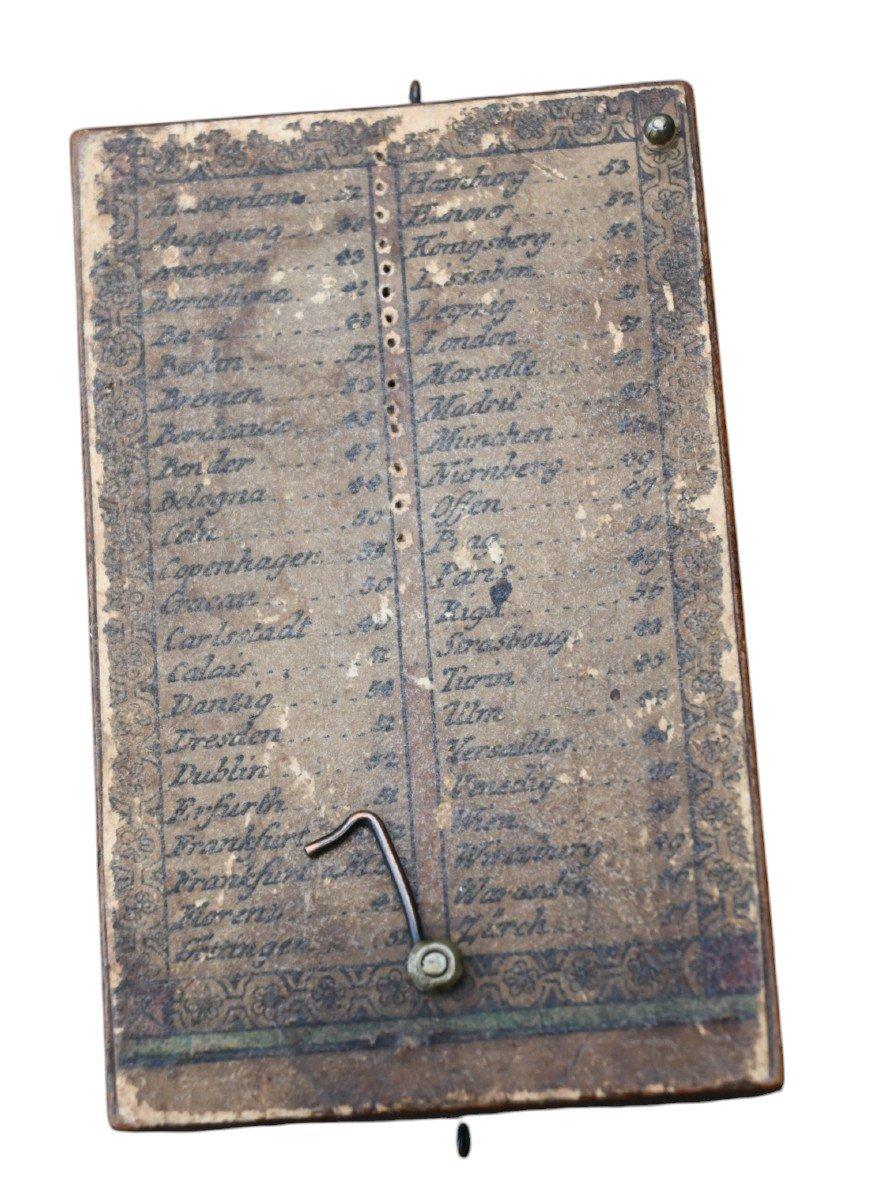 Amsterdam 52
Augspurg 48
Anconna 43
Barcellona
Basil 48
Berlin 52
Bremen 53
Bordeaux 45
Bender 47
Bologna 44
Cöln 50
Copenhagen 55
Cracau 50
Carlsstadt
Calais 51
Danzig 54
Dresden 51
Dublin 52
Erfurth 51
Frankfurt
Frankfurt a.M.
Florenz
Göttingen
Hamburg 53
Hanover 52
Königsberg 54
Lissabon
Leipzig 51
London 51
Marselle 43
Madrit 40
München 48
Nürnberg 49
Offen 47
Prag 50
Paris 49
Riga 56
Strasboug 48
Turin 45
Ulm 48
Versailles
Venedig
Wien
Würtzburg 49
Warasdin
Zürch